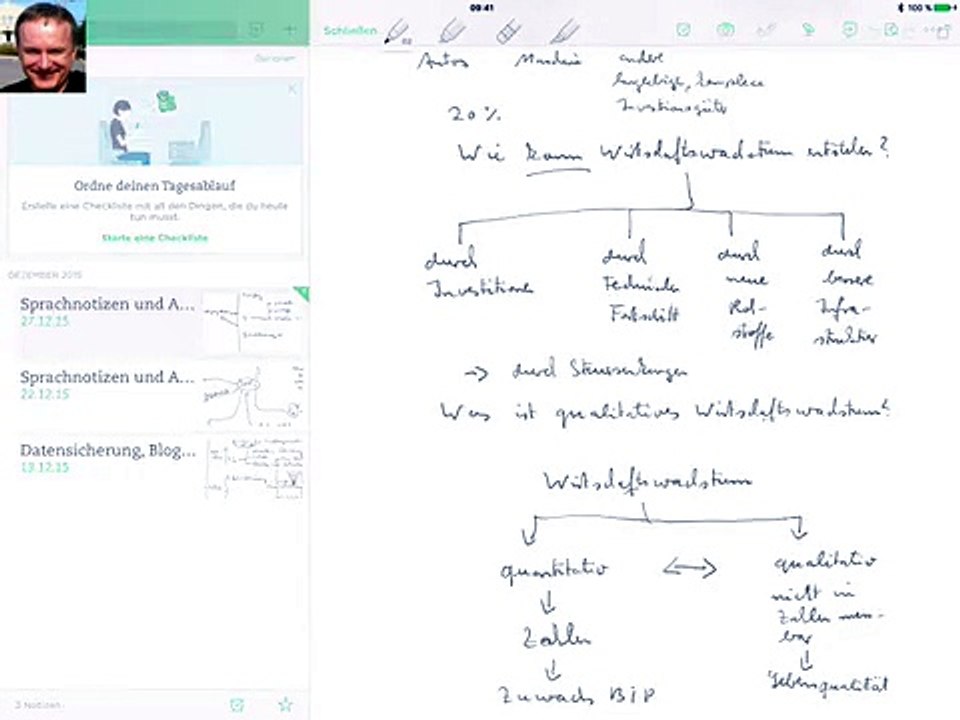 09:41
100 %
Schließen
Optionen
Ordne deinen Tagesablauf
Erstelle eine Checkliste mit all den Dingen, die du heute
tun musst.
Starte eine Checkliste
DEZEMBER 2015
Sprachnotizen und A...
27.12.15
Sprachnotizen und A...
22.12.15
Datensicherung, Blog...
13.12.15
3 Notizen
Autos
andere
langlebige, komplexe
Investitionsgüter
20 %
Wie kann Wirtschaftswachstum entstehen?
durch
Investitionen
durch
Technischen
Fortschritt
durch
neue
Roh-
stoffe
durch
bessere
Infra-
struktur
→ durch Steuersenkungen
Was ist qualitatives Wirtschaftswachstum?
Wirtschaftswachstum
quantitativ ↔ qualitativ
nicht in
Zahlen mess-
bar
Zahlen
Zuwachs BIP
Lebensqualität